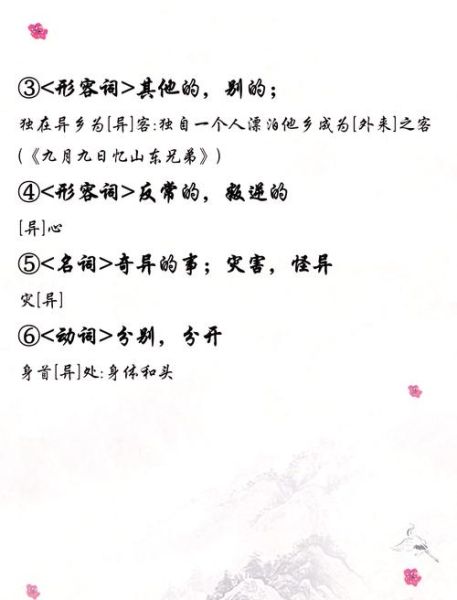 ③<形容词>其他的，别的；
独在异乡为[异]客:独自一个人漂泊他乡成为[外来]之客
(《九月九日忆山东兄弟》)
④<形容词>反常的，叛逆的
[异]心
⑤<名词>奇异的事；灾害，怪异
灾[异]
⑥<动词>分别，分开
身首[异]处:身体和头